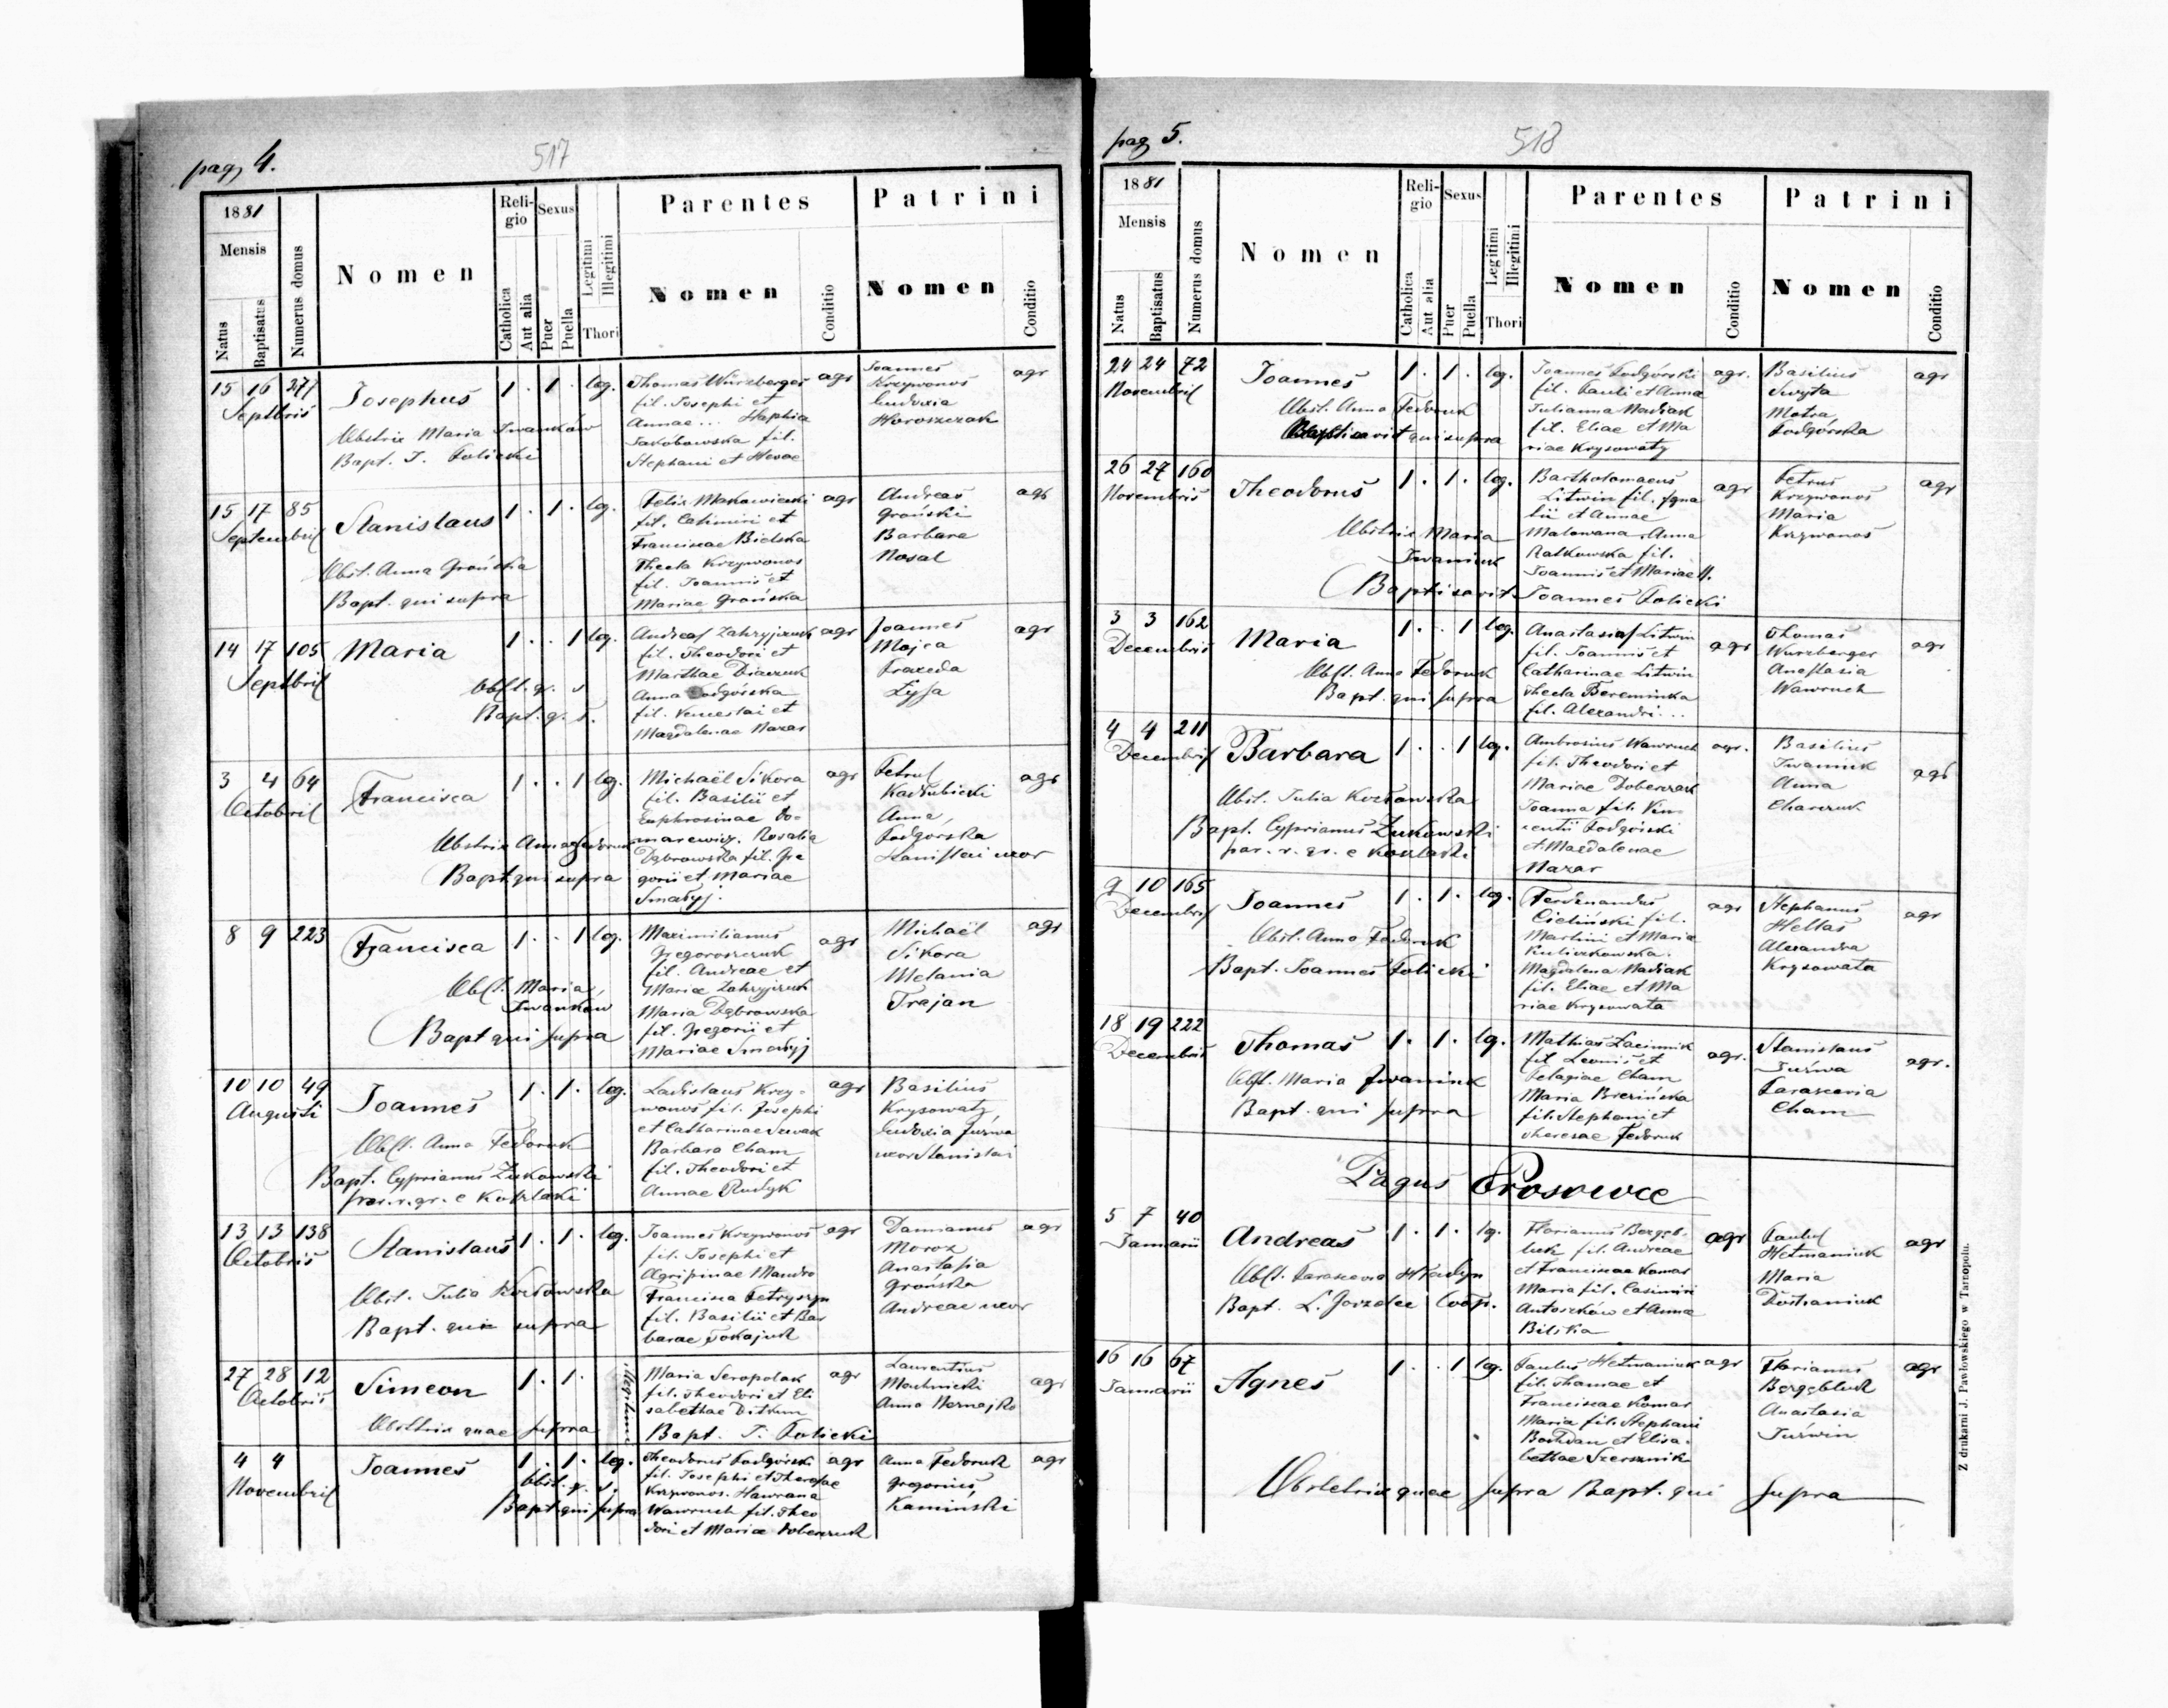 pag. 4.
517
1881
Mensis
Natus
Baptisatus
Numerus domus
Nomen
Religio
Catholica
Aut alia
Sexus
Puer
Puella
Legitimi
Illegitimi
Thori
Parentes
Nomen
Conditio
Patrini
Nomen
Conditio
15 16 277
Septbris
Josephus
1 . 1 . leg.
Obstrix Maria Iwanków
Bapt. J. Policki
Thomas Würzberger agr
fil. Josephi et
Annae ... Haphia
Jakobowska fil.
Stephani et Hevae
Joannes
Krzywonos agr
Eudoxia
Horoszczak
15 17 85
Septembris
Stanislaus
1 . 1 . leg.
Obst. Anna Grońska
Bapt. qui supra
Felix Makowiecki agr
fil. Casimiri et
Franciscae Bielska
Thecla Krzywonos
fil. Joannis et
Mariae Grońska
Andreas agr
Groński
Barbara
Nosal
14 17 105
Septbris
Maria
1 . . 1 leg.
Obst. q. s.
Bapt. q. s.
Andreas Zahryjczuk agr
fil. Theodori et
Marthae Diaczuk
Anna Podgórska
fil. Venceslai et
Magdalenae Nazar
Joannes agr
Majca
Praxeda
Łysa
3 4 64
Octobris
Francisca
1 . . 1 leg.
Obstrix Anna Fedoruk
Bapt. qui supra
Michaël Sikora agr
fil. Basilii et
Euphrosinae Do-
marewicz. Rosalia
Dąbrowska fil. Gre
gorii et Mariae
Smałyj.
Petrus agr
Kadłubicki
Anna,
Podgorska
Stanislai uxor
8 9 223
Francisca
1 . . 1 leg.
Obst. Maria,
Iwanków
Bapt qui supra
Maximilianus
Gregoroszczuk agr
fil. Andreae et
Mariae Zahryjczuk
Maria Dąbrowska
fil. Gregorii et
Mariae Smałyj
Michaël agr
Sikora
Melania
Trajan
10 10 49
Augusti
Joannes
1 . 1 . leg.
Obst. Anna Fedoruk
Bapt. Cyprianus Żukowski
par. r. gr. e Kozlaki
Ladislaus Krzy- agr
wonos fil. Josephi
et Catharinae Nowak
Barbara Cham
fil. Theodori et
Annae Rudyk
Basilius
Krysowaty,
Eudoxia Juzwa
uxor Stanislai
13 13 138
Octobris
Stanislaus
1 . 1 . leg.
Obst. Julia Kozłowska
Bapt. qui supra
Joannes Krzywonos agr
fil. Josephi et
Agripinae Mandro
Francisca Petryszyn
fil. Basilii et Bar
barae Tokajuk
Damianus agr
Moroz
Anastasia
Grońska
Andreae uxor
27 28 12
Octobris
Simeon
1 . 1 .
illegitimi
Obstetrix quae supra
Maria Seropolak agr
fil. Theodori et Eli
sabethae Ditkun
Bapt. J. Policki
Laurentius
Machnicki agr
Anna Wernajko
4 4
Novembris
Joannes
1 . 1 . leg.
Obst. q. s.
Bapt qui supra
Theodorus Podgórski agr
fil. Josephi et Theresae
Krzywonos. Hawrana
Wawruch fil. Theo
dori et Mariae Doberczuk
Anna Fedoruk agr
Gregorius,
Kaminski
pag 5.
518
1881
Mensis
Natus
Baptisatus
Numerus domus
Nomen
Religio
Catholica
Aut alia
Sexus
Puer
Puella
Legitimi
Illegitimi
Thori
Parentes
Nomen
Conditio
Patrini
Nomen
Conditio
24 24 72
Novembris
Joannes
1 . 1 . leg.
Obst. Anna Fedoruk
Baptisavit qui supra
Joannes Podgórski agr.
fil. Pauli et Anna
Julianna Maciak
fil. Eliae et Ma
riae Krysowaty
Basilius agr
Swyta
Motra
Podgórska
26 27 160
Novembris
Theodorus
1 . 1 . leg.
Obstrix Maria
Iwaniuk
Baptisavit Joannes Policki
Bartholomaeus agr
Litwin fil. Igna
tii et Annae
Malowana. Anna
Ratkowska fil.
Joannis et Mariae N.
Petrus agr
Krzywonos
Maria
Krzywonos
3 3 162
Decembris
Maria
1 . . 1 leg.
Obst. Anna Fedoruk
Bapt. qui supra
Anastasius Litwin agr
fil. Joannis et
Catharinae Litwin
Thecla Bereminka
fil. Alexandri ...
Thomas agr
Wurzberger
Anastasia
Wawruch
4 4 211
Decembris
Barbara
1 . . 1 leg.
Obst. Julia Kozłowska
Bapt. Cyprianus Żukowski
par. r. gr. e Kozlaki
Ambrosius Wawruch agr.
fil. Theodori et
Mariae Doberczak
Joanna fil. Vin-
centii Podgórski
et Magdalenae
Nazar
Basilius
Iwaniuk agr
Anna
Charczuk
9 10 165
Decembris
Joannes
1 . 1 . leg.
Obst. Anna Fedoruk
Bapt. Joannes Policki
Ferdinandus agr
Cieliński fil.
Martini et Maria
Kuliczkowska.
Magdalena Maciak
fil. Eliae et Ma
riae Krysowata
Stephanus agr
Heltas
Alexandra
Krysowata
18 19 222
Decembris
Thomas
1 . 1 . leg.
Obst. Maria Iwaniuk
Bapt. qui supra
Mathias Zacinnik agr.
fil Leonis et
Pelagiae Cham
Maria Brezińska
fil. Stephani et
Theresae Fedoruk
Stanislaus agr.
Juźwa
Parascevia
Cham
Pagus Prosowce
5 7 40
Januarii
Andreas
1 . 1 . lg.
Bapt. L. Jarzolee Coop.
Florianus Bezgeb- agr
luk fil. Andreae
et Franciscae Komar
Maria fil. Casimiri
Antoszków et Anna
Bilska
Paulus agr
Hetmaniuk
Maria
Dostaniuk
16 16 67
Januarii
Agnes
1 . . 1 leg.
Paulus Hetmaniuk agr
fil. Thomae et
Franciscae Komar
Maria fil. Stephani
Bohdan et Elisa-
bethae Szersznik
Florianus agr
Bezgebluk
Anastasia
Juźwin
Obstetrix quae supra Bapt. qui supra
Z drukarni J. Pawłowskiego w Tarnopolu.